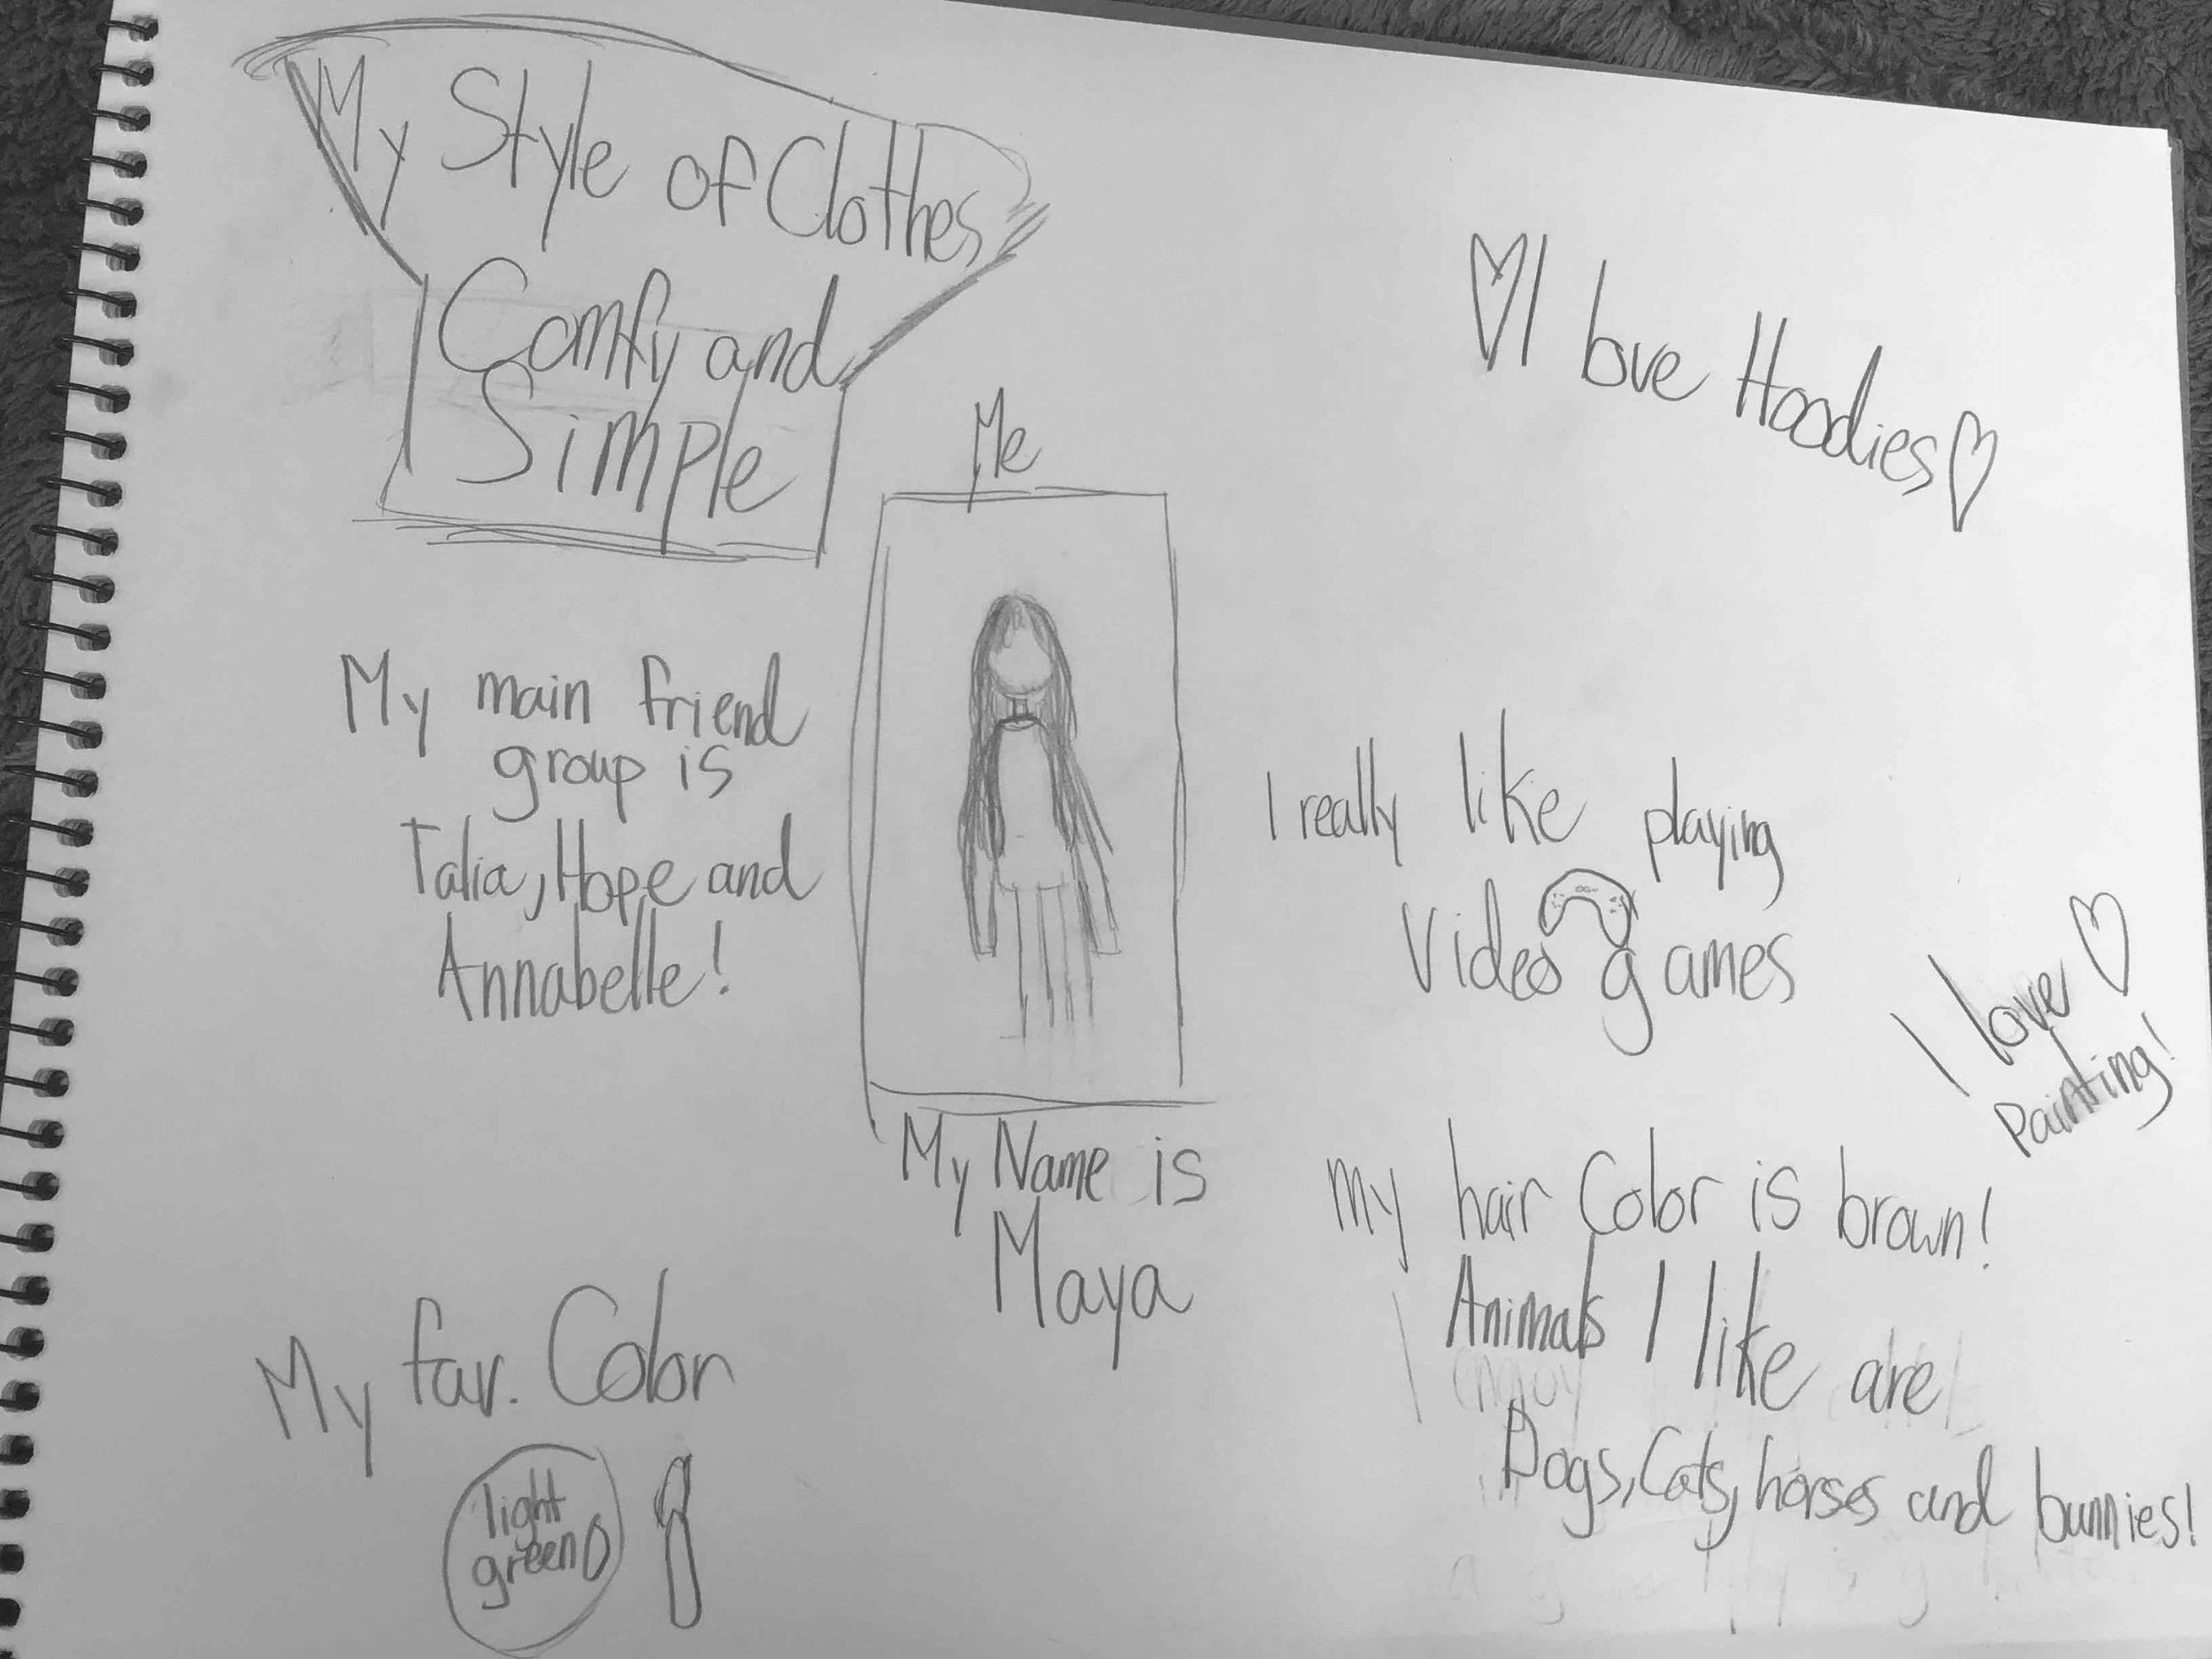 My Style of Clothes
Comfy and
Simple
I love Hoodies
Me
My main friend
group is
Talia, Hope and
Annabelle!
I really like playing
Video games
I love
Painting!
My Name is
Maya
my hair Color is brown!
Animals I like are
Dogs, Cats, horses and bunnies!
My fav. Color
light
green